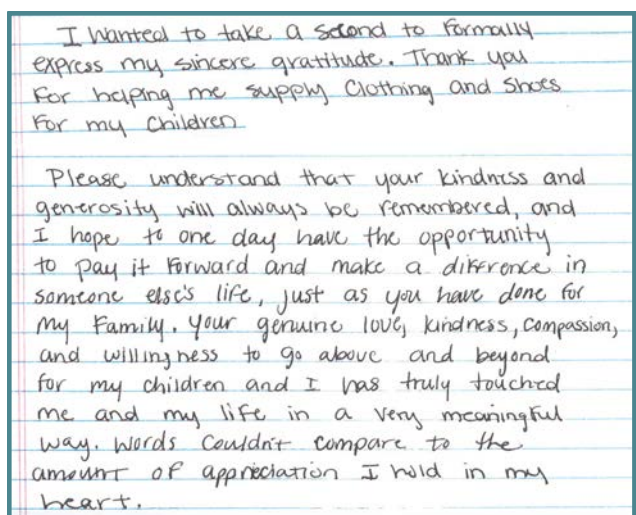 I Wanted to take a second to Formally
express my sincere gratitude. Thank you
For helping me supply Clothing and Shoes
For my Children
Please understand that your kindness and
generosity will always be remembered, and
I hope to one day have the opportunity
to pay it Forward and make a diffrence in
someone else's life, just as you have done for
my Family. Your genuine love, kindness, compassion,
and willingness to go above and beyond
for my children and I has truly touched
me and my life in a very meaningful
way. Words Couldn't compare to the
amount of appreciation I hold in my
heart.